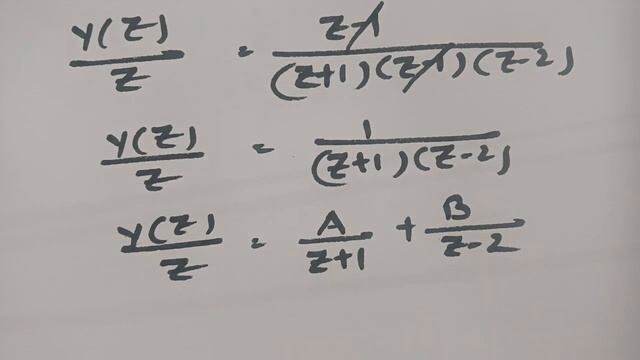 Y(Z)/Z = Z-1/(Z+1)(Z-1)(Z-2)
Y(Z)/Z = 1/(Z+1)(Z-2)
Y(Z)/Z = A/Z+1 + B/Z-2